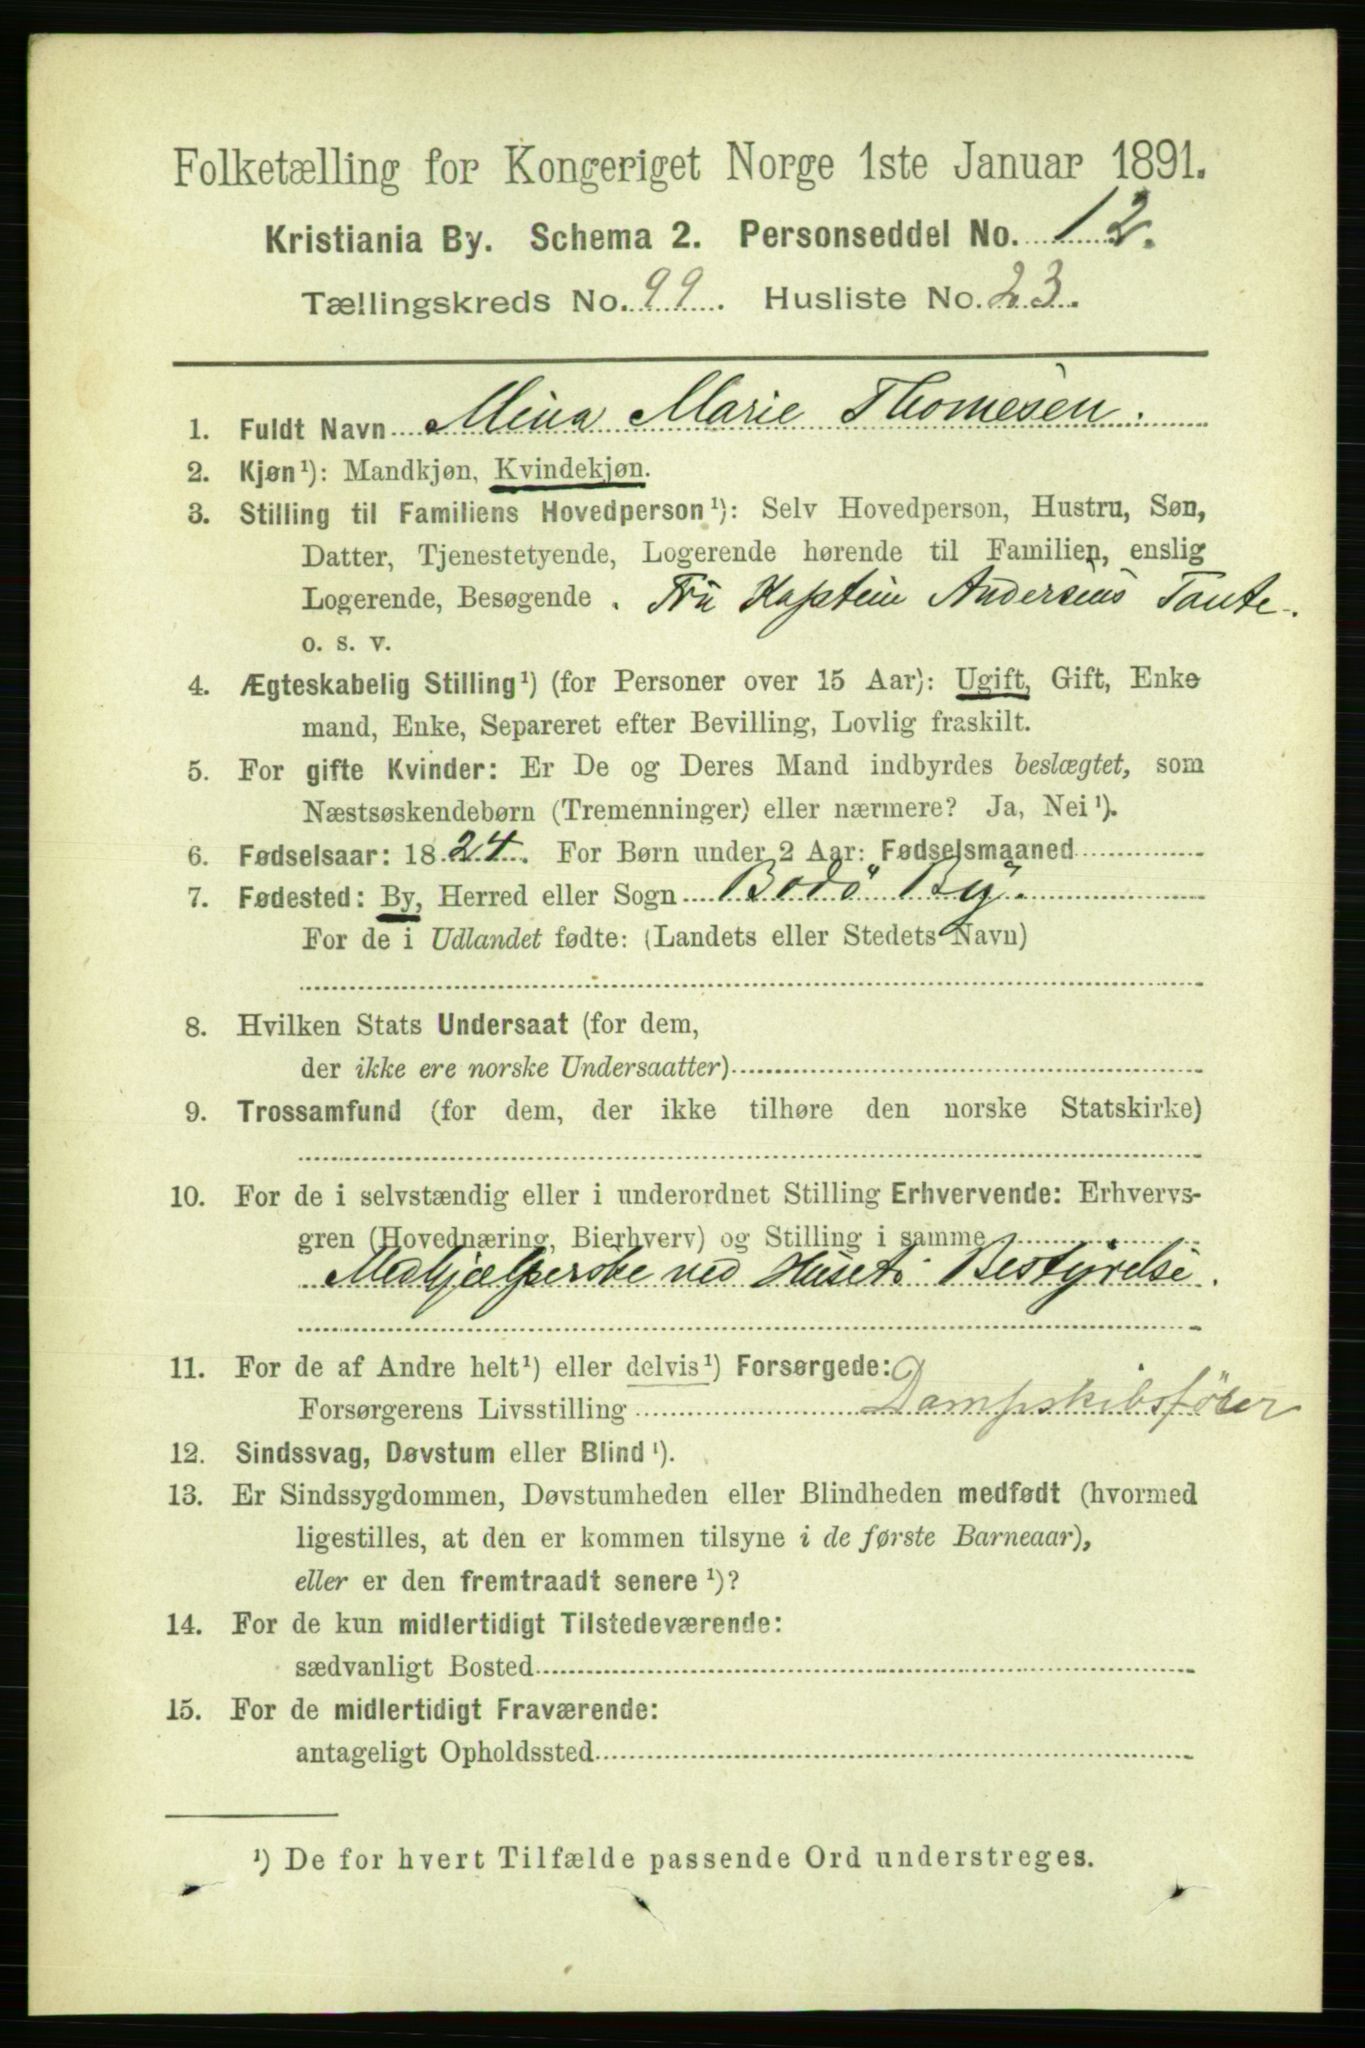 Folketælling for Kongeriget Norge 1ste Januar 1891.
Kristiania By. Schema 2. Personseddel No. 12.
Tællingskreds No. 99. Husliste No. 23.
1. Fuldt Navn Mina Marie Thomesen.
2. Kjøn¹): Mandkjøn, Kvindekjøn.
3. Stilling til Familiens Hovedperson¹): Selv Hovedperson, Hustru, Søn,
Datter, Tjenestetyende, Logerende hørende til Familien, enslig
Logerende, Besøgende . Fru Kaptein Andersens Tante.
o. s. v.
4. Ægteskabelig Stilling¹) (for Personer over 15 Aar): Ugift, Gift, Enke
mand, Enke, Separeret efter Bevilling, Lovlig fraskilt.
5. For gifte Kvinder: Er De og Deres Mand indbyrdes beslægtet, som
Næstsøskendebørn (Tremenninger) eller nærmere? Ja, Nei¹).
6. Fødselsaar: 1824. For Børn under 2 Aar: Fødselsmaaned
7. Fødested: By, Herred eller Sogn Bodö By.
For de i Udlandet fødte: (Landets eller Stedets Navn)
8. Hvilken Stats Undersaat (for dem,
der ikke ere norske Undersaatter)
9. Trossamfund (for dem, der ikke tilhøre den norske Statskirke)
10. For de i selvstændig eller i underordnet Stilling Erhvervende: Erhvervs-
gren (Hovednæring, Bierhverv) og Stilling i samme
Medhjælperske ved Husets Bestyrelse.
11. For de af Andre helt¹) eller delvis¹) Forsørgede:
Forsørgerens Livsstilling Dampskibsfören
12. Sindssvag, Døvstum eller Blind¹).
13. Er Sindssygdommen, Døvstumheden eller Blindheden medfødt (hvormed
ligestilles, at den er kommen tilsyne i de første Barneaar),
eller er den fremtraadt senere¹)?
14. For de kun midlertidigt Tilstedeværende:
sædvanligt Bosted
15. For de midlertidigt Fraværende:
antageligt Opholdssted
¹) De for hvert Tilfælde passende Ord understreges.